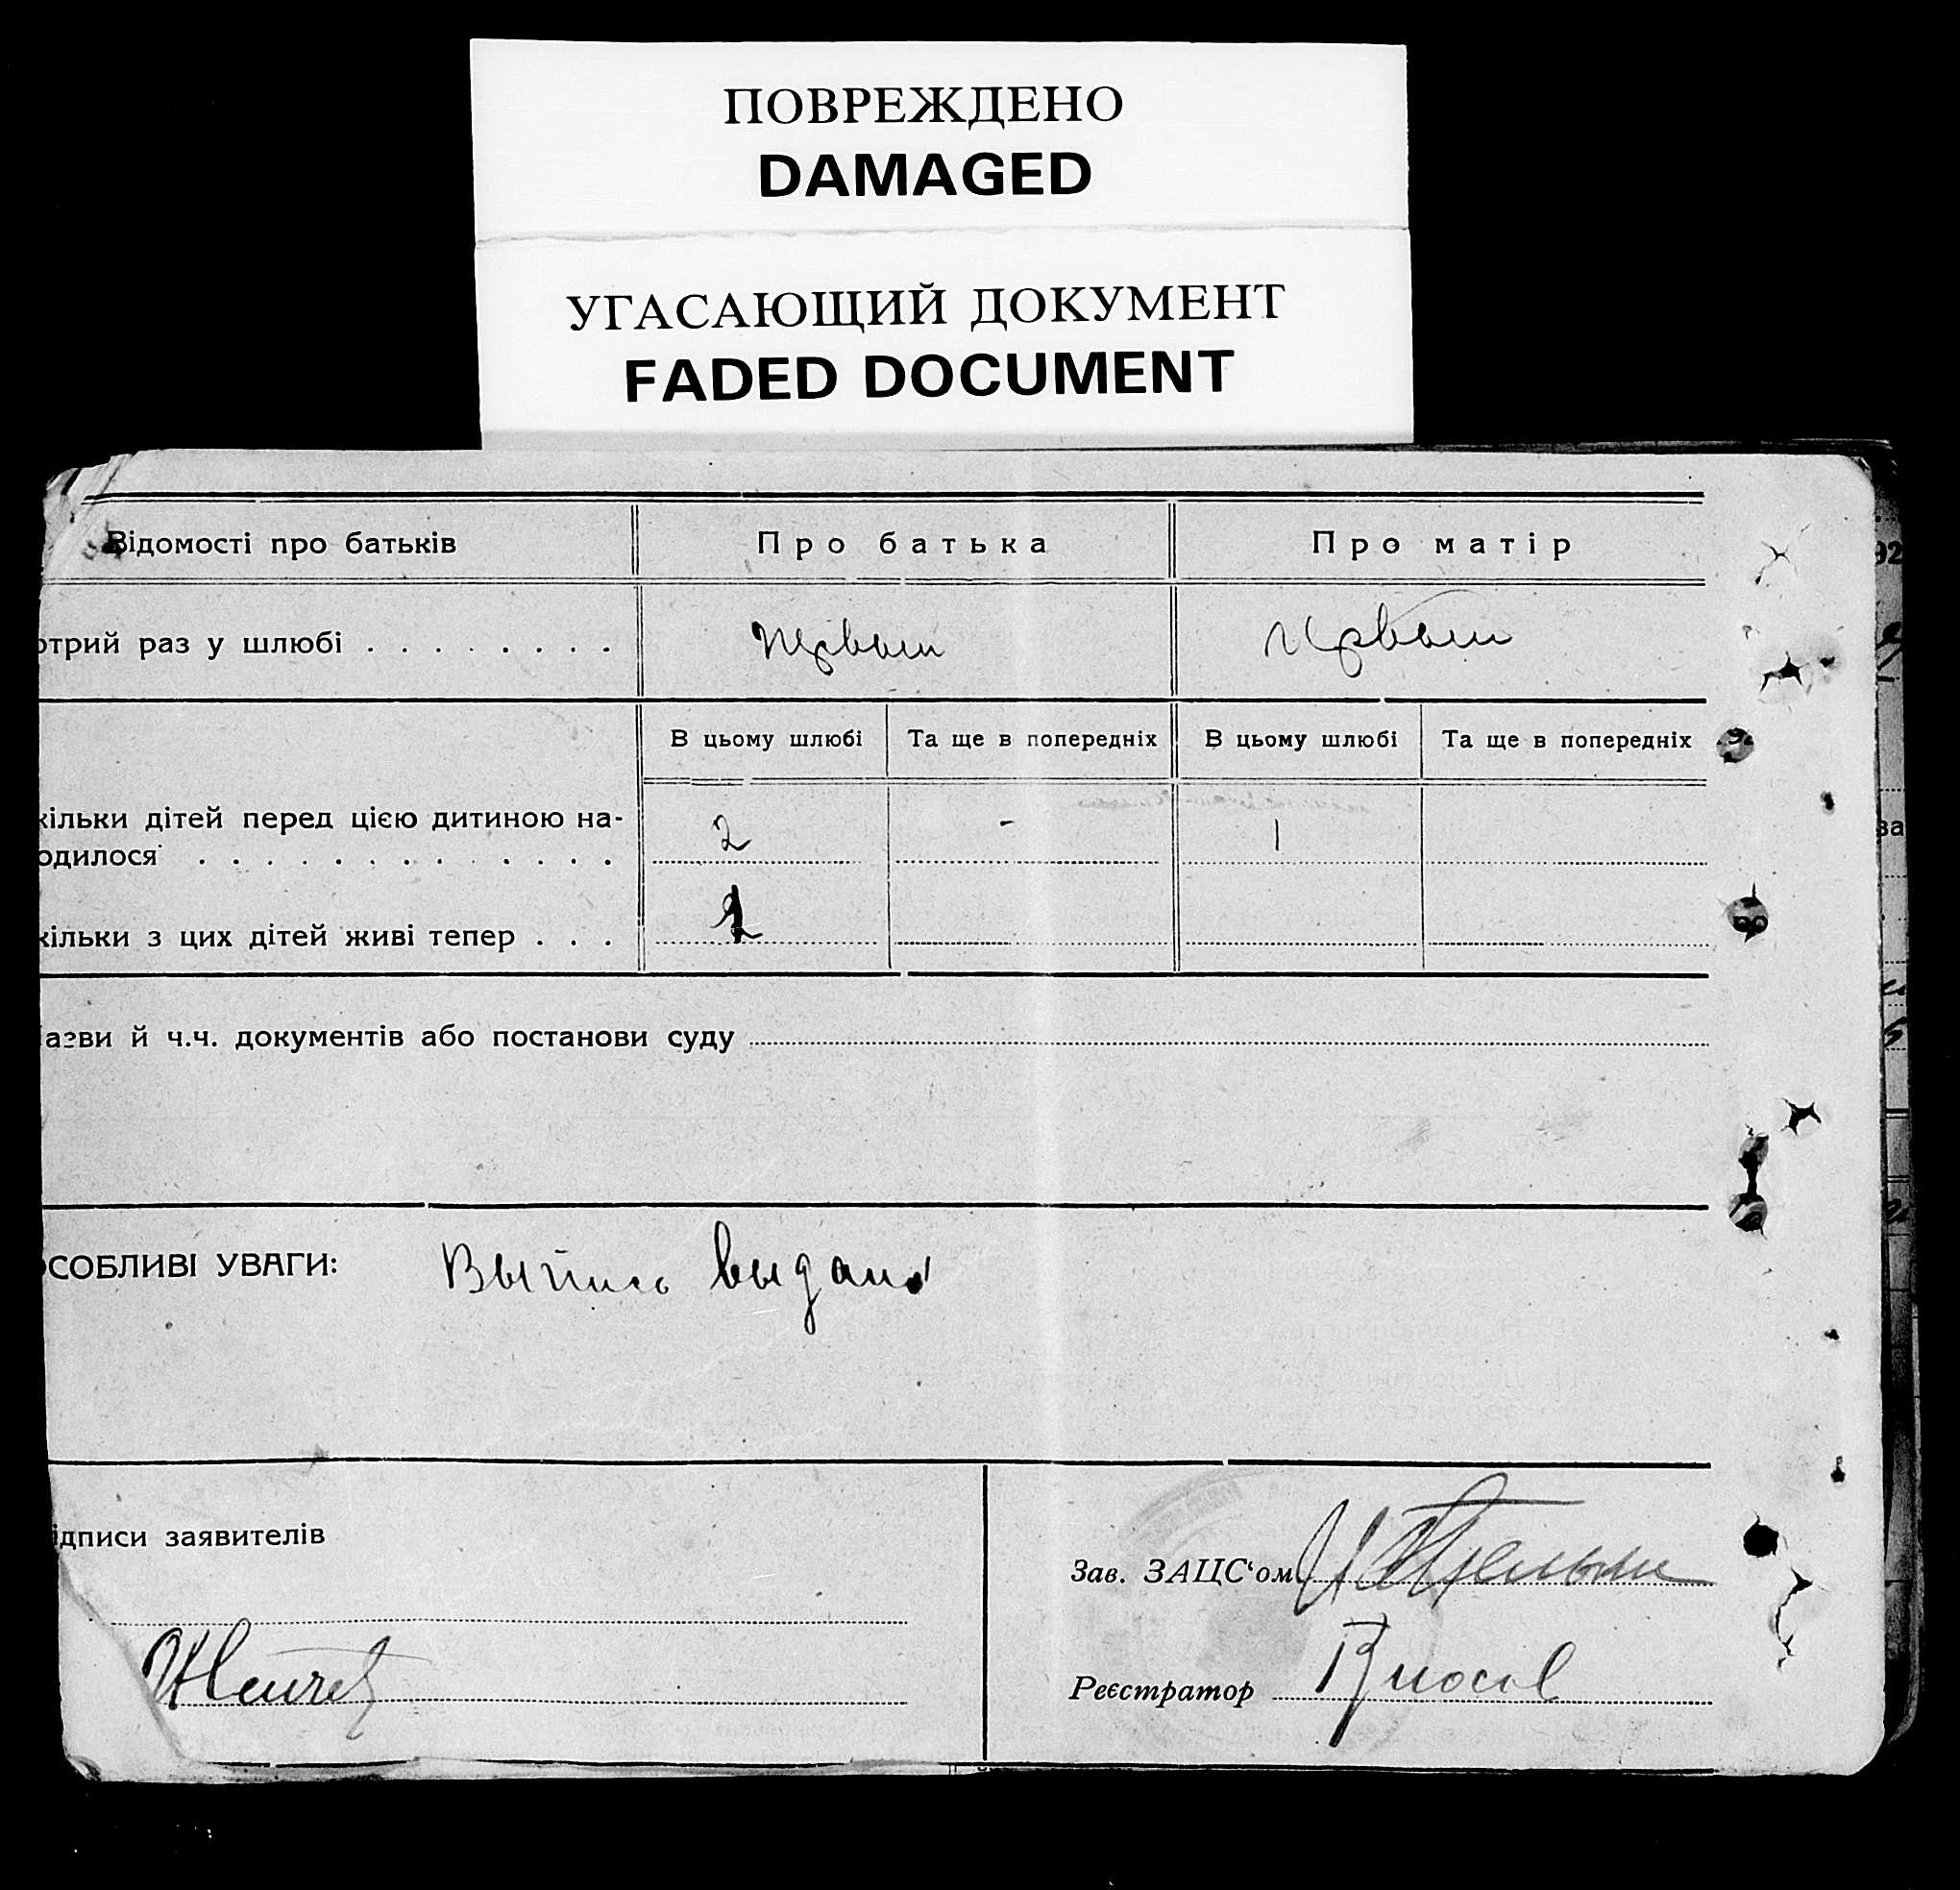 ПОВРЕЖДЕНО
DAMAGED
УГАСАЮЩИЙ ДОКУМЕНТ
FADED DOCUMENT
Відомості про батьків
Про батька
Про матір
отрий раз у шлюбі
В цьому шлюбі
Та ще в попередніх
В цьому шлюбі
Та ще в попередніх
кільки дітей перед цією дитиною на-
одилося
2
-
1
кільки з цих дітей живі тепер
азви й ч.ч. документів або постанови суду
ОСОБЛИВІ УВАГИ: Выпись выдана
ідписи заявителів
Зав. ЗАЦС'ом
Реєстратор